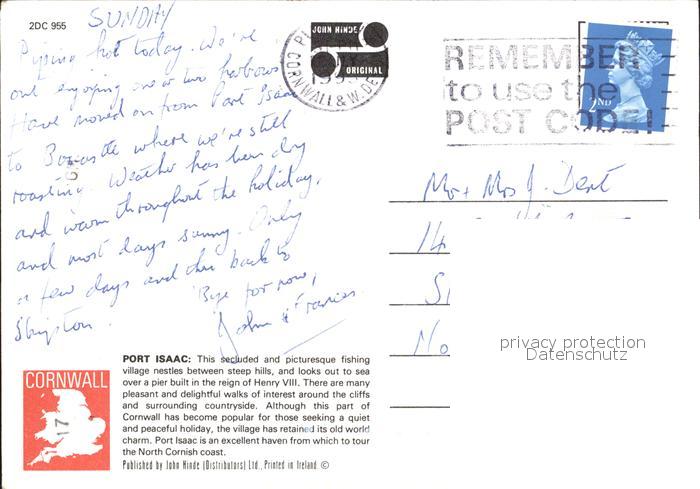 2DC 955
SUNDAY
Piping hot today. We're
out enjoying one or two harbours
Have moved on from Port Isaac
to Boscastle where we're still
roasting. Weather has been dry
and warm throughout the holiday,
and most days sunny. Only
a few days and then back to
Shipton.
'Bye for now,
John & Frances.
JOHN HINDE
ORIGINAL
CORNWALL & W. DE
REMEMBER
to use the
POST CODE!
2ND
Mr & Mrs J. Dent
14
S
No
privacy protection
Datenschutz
CORNWALL
17
PORT ISAAC: This secluded and picturesque fishing
village nestles between steep hills, and looks out to sea
over a pier built in the reign of Henry VIII. There are many
pleasant and delightful walks of interest around the cliffs
and surrounding countryside. Although this part of
Cornwall has become popular for those seeking a quiet
and peaceful holiday, the village has retained its old world
charm. Port Isaac is an excellent haven from which to tour
the North Cornish coast.
Published by John Hinde (Distributors) Ltd., Printed in Ireland ©